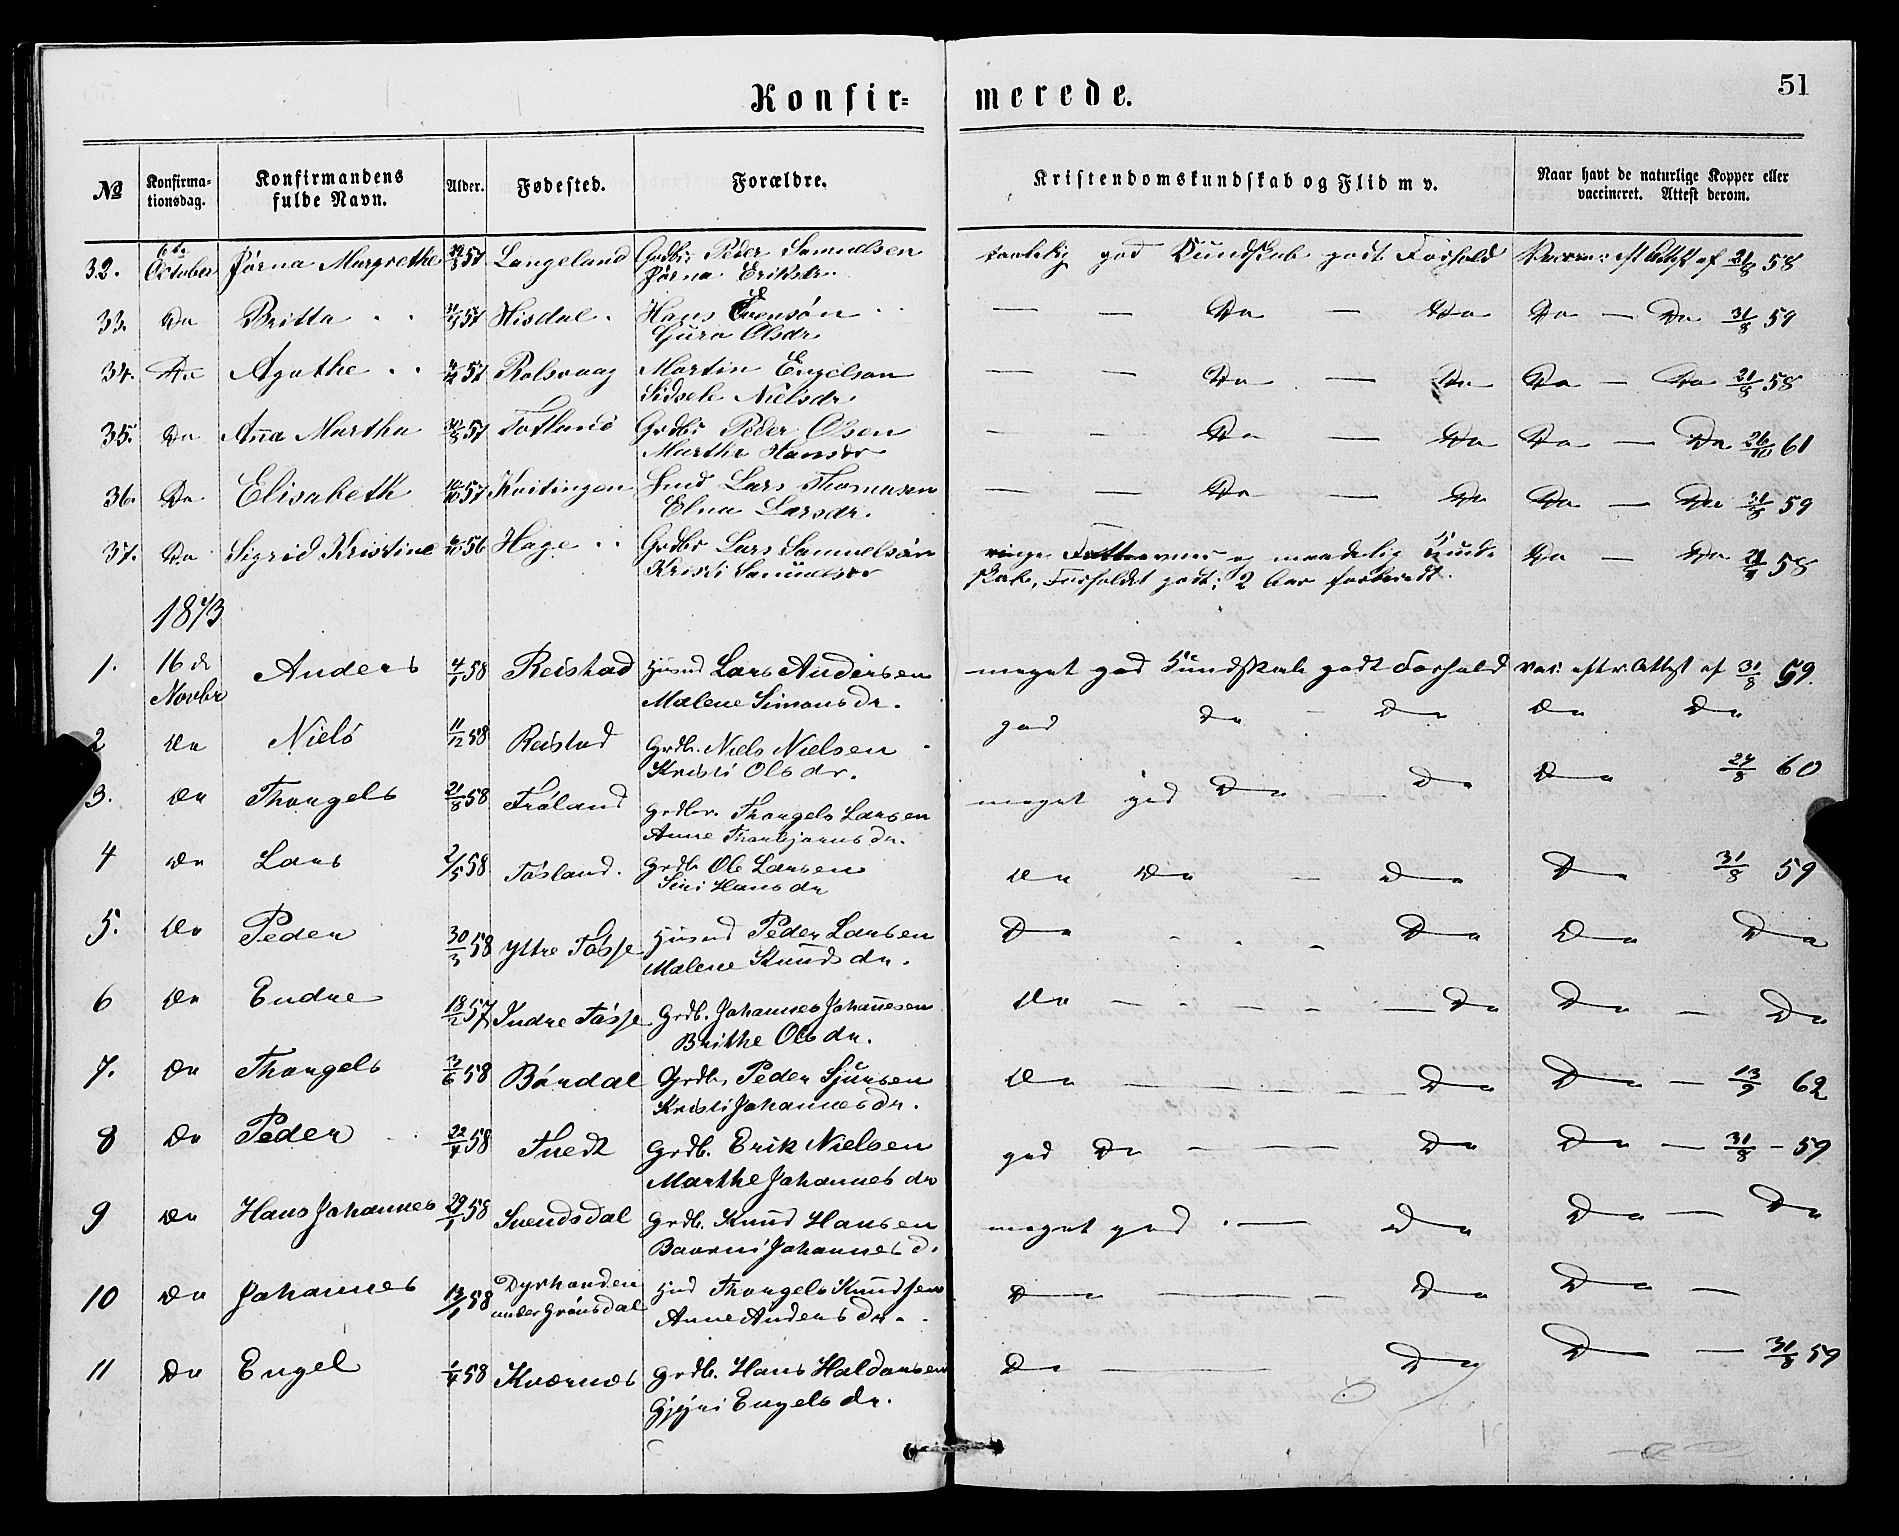 51
Konfir= merede.
№ Konfirma-tionsdag. Konfirmandens fulde Navn. Alder. Fødested. Forældre. Kristendomskundskab og Flid m v. Naar havt de naturlige Kopper eller vaccineret. Attest derom.
32. 6te October Jørna Margrethe 57 Langeland Grdbr Peder Samuelsen god Kundskab godt Forhold Attest af 21/8 58
Jørna Eriksdr.
33. Do Britta 57 Hisdal. Hans Svensön — — Do — Do Do — Do 31/8 59
Guro Olsdr
34. Do Agathe 57 Rolsvaag Martin Engelsen — — Do — Do Do — Do 21/8 58
Sidsele Nielsdr.
35. Do Anna Martha 30/8 57 Totland Grdbr Peder Olsen — — Do — Do Do — Do 26/10 61
Marthe Hansdr
36. Do Elisabeth 57 Kvitingen Hmd Lars Thomasen — — Do — Do Do — Do 31/8 59
Elna Larsdr.
37. Do Sigrid Kristine 56 Hage Grdbr Lars Samuelsön ringe Fatteevner og maadelig Kund- Do — Do 58
Kristi Samuelsdr skab, Forholdet godt; 2 Aar forberedt.
1873
1. 16 de Anders 4/1 58 Reistad Husmd Lars Andersen meget god Kundskab godt Forhold vac. efter Attest af 31/8 59.
Novbr Malene Simonsdr.
2 Do Niels 11/12 58 Reistad Grdb. Niels Nielsen god Do — Do Do Do
Kristi Olsdr.
3. Do Thorgels 21/8 58 Fröland Grdbr. Thorgels Larsen meget god Do — Do Do 27/8 60
Anne Thorbjørnsdr.
4 Do Lars 2/5 58 Tösland. Grdb Ole Larsen Do Do — Do Do 31/8 59
Siri Hansdr
5. Do Peder 30/3 58 Ytre Tösse Husmd Peder Larsen Do - - - Do Do Do
Malene Knudsdr.
6 Do Endre 18/12 57 Indre Tösse Grdb. Johannes Johannesen Do - - - - Do Do — Do
Brithe Olsdr.
7. Do Thorgels 3/6 58 Bördal Grdb. Peder Sjursen Do - - - - Do Do — 13/9 62
Kristi Johannesdr.
8 Do Peder 22/4 58 Tvedt Grdb. Erik Nielsen god Do - - - Do Do — 31/8 - 59
Marthe Johannesdr
9 Do Hans Johannes 29/1 58 Svendsdal Grdb. Knud Hansen meget god. — Do Do — Do
Baarni Johannesd.
10 Do Johannes 13/1 58 Dyrhovden Hmd Thorgels Knudsen Do — — — Do Do —
under Grönsdal Anne Andersdr.
11 Do Engel 58 Kvernes Grdb. Hans Haldorsen Do — — Do Do — 31/8 59
Gjøri Engelsdr.